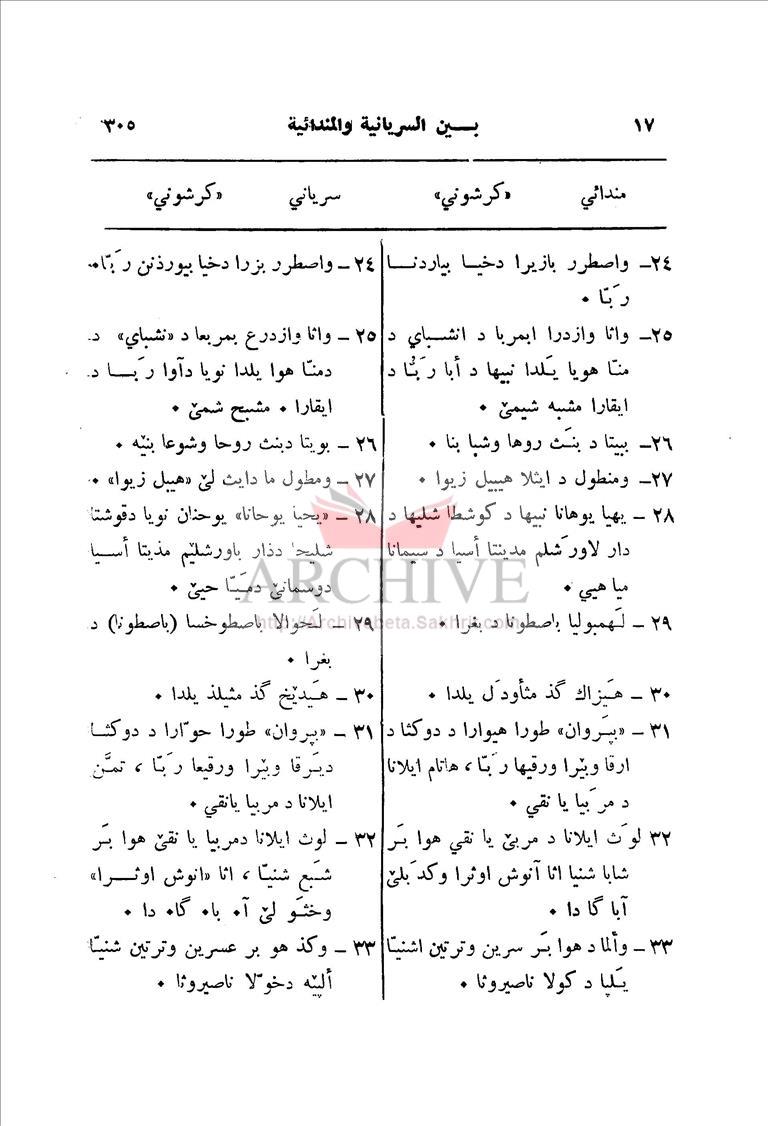 ١٧ بــين السريانية والمندائية ٣٠٥
مندائي «كرشوني»
٢٤ـ واصطرر بازيرا دخيـا بياردنـا
ربّا ٠
٢٥ـ واثا وازدرا ابمربا د انشباي د
منا هويا يلدا نبيها د أبا ربّا د
ايقارا مشبه شيمئ ٠
٢٦ـ بيتا د بنث روها وشبا بنا ٠
٢٧ـ ومنطول د ايثلا هيبيل زيوا ٠
٢٨ ـ يهيا يوهانا نبيها د كوشطا شليها د
دار لاورشلم مدينتا أسيا د سيمانا
ميا هيي ٠
٢٩ ـ لهمبوليا باصطونا د بغرا ٠
٣٠ ـ هيزاك گذ مثأودل يلدا ٠
٣١ ـ «پروان» طورا هيوارا د دوكثا د
ارقا وبيرا ورقيها ربّا ، هاتام ايلانا
د مربيا يا نقي ٠
٣٢ لوث ايلانا د مربئ يا نقي هوا بر
شابا شنيا اثا آنوش اوثرا وكدبلئ
آبا گا دا ٠
٣٣ ـ وألماد هوا بر سرين وترتين اشنيا
يلپا د كولا ناصيروثا ٠
سرياني «كرشوني»
٢٤ ـ واصطرر بزرا دخيا بيورذنن ربّا٠
٢٥ ـ واثا وازدرع بمربعا د «نشباي» د
دمنا هوا يلدا نويا دآوا ربـا د
ايقارا ٠ مشبح شمئ ٠
٢٦ ـ بويتا دبنث روحا وشوعا بنيه ٠
٢٧ ـ ومطول ما دايث لئ «هيبل زيوا» ٠
٢٨ ـ «يحيا يوحانا» يوحنان نويا دقوشتا
شليحا دذار باورشليم مذيتا أسيا
دوسمانئ دميا حيئ ٠
٢٩ ـ لحوالا باصطوخسا (باصطونا) د
بغرا ٠
٣٠ ـ هيديخ گذ مثيلذ يلدا ٠
٣١ ـ «پروان» طورا حوارا د دوكثا
ديرقا وبيرا ورقيعا ربّا ، تمن
ايلانا د مربيا يانقي ٠
٣٢ ـ لوث ايلانا دمربيا يا نقئ هوا بر
شبع شنيا ، اثا «انوش اوثرا»
وخثو لئ آ٠ با٠ گا٠ دا ٠
٣٣ ـ وكذ هو بر عسرين وترتين شنيا
ألپيه دخولا ناصيروثا ٠
ARCHIVE
http://Archivebeta.Sakhrit.com